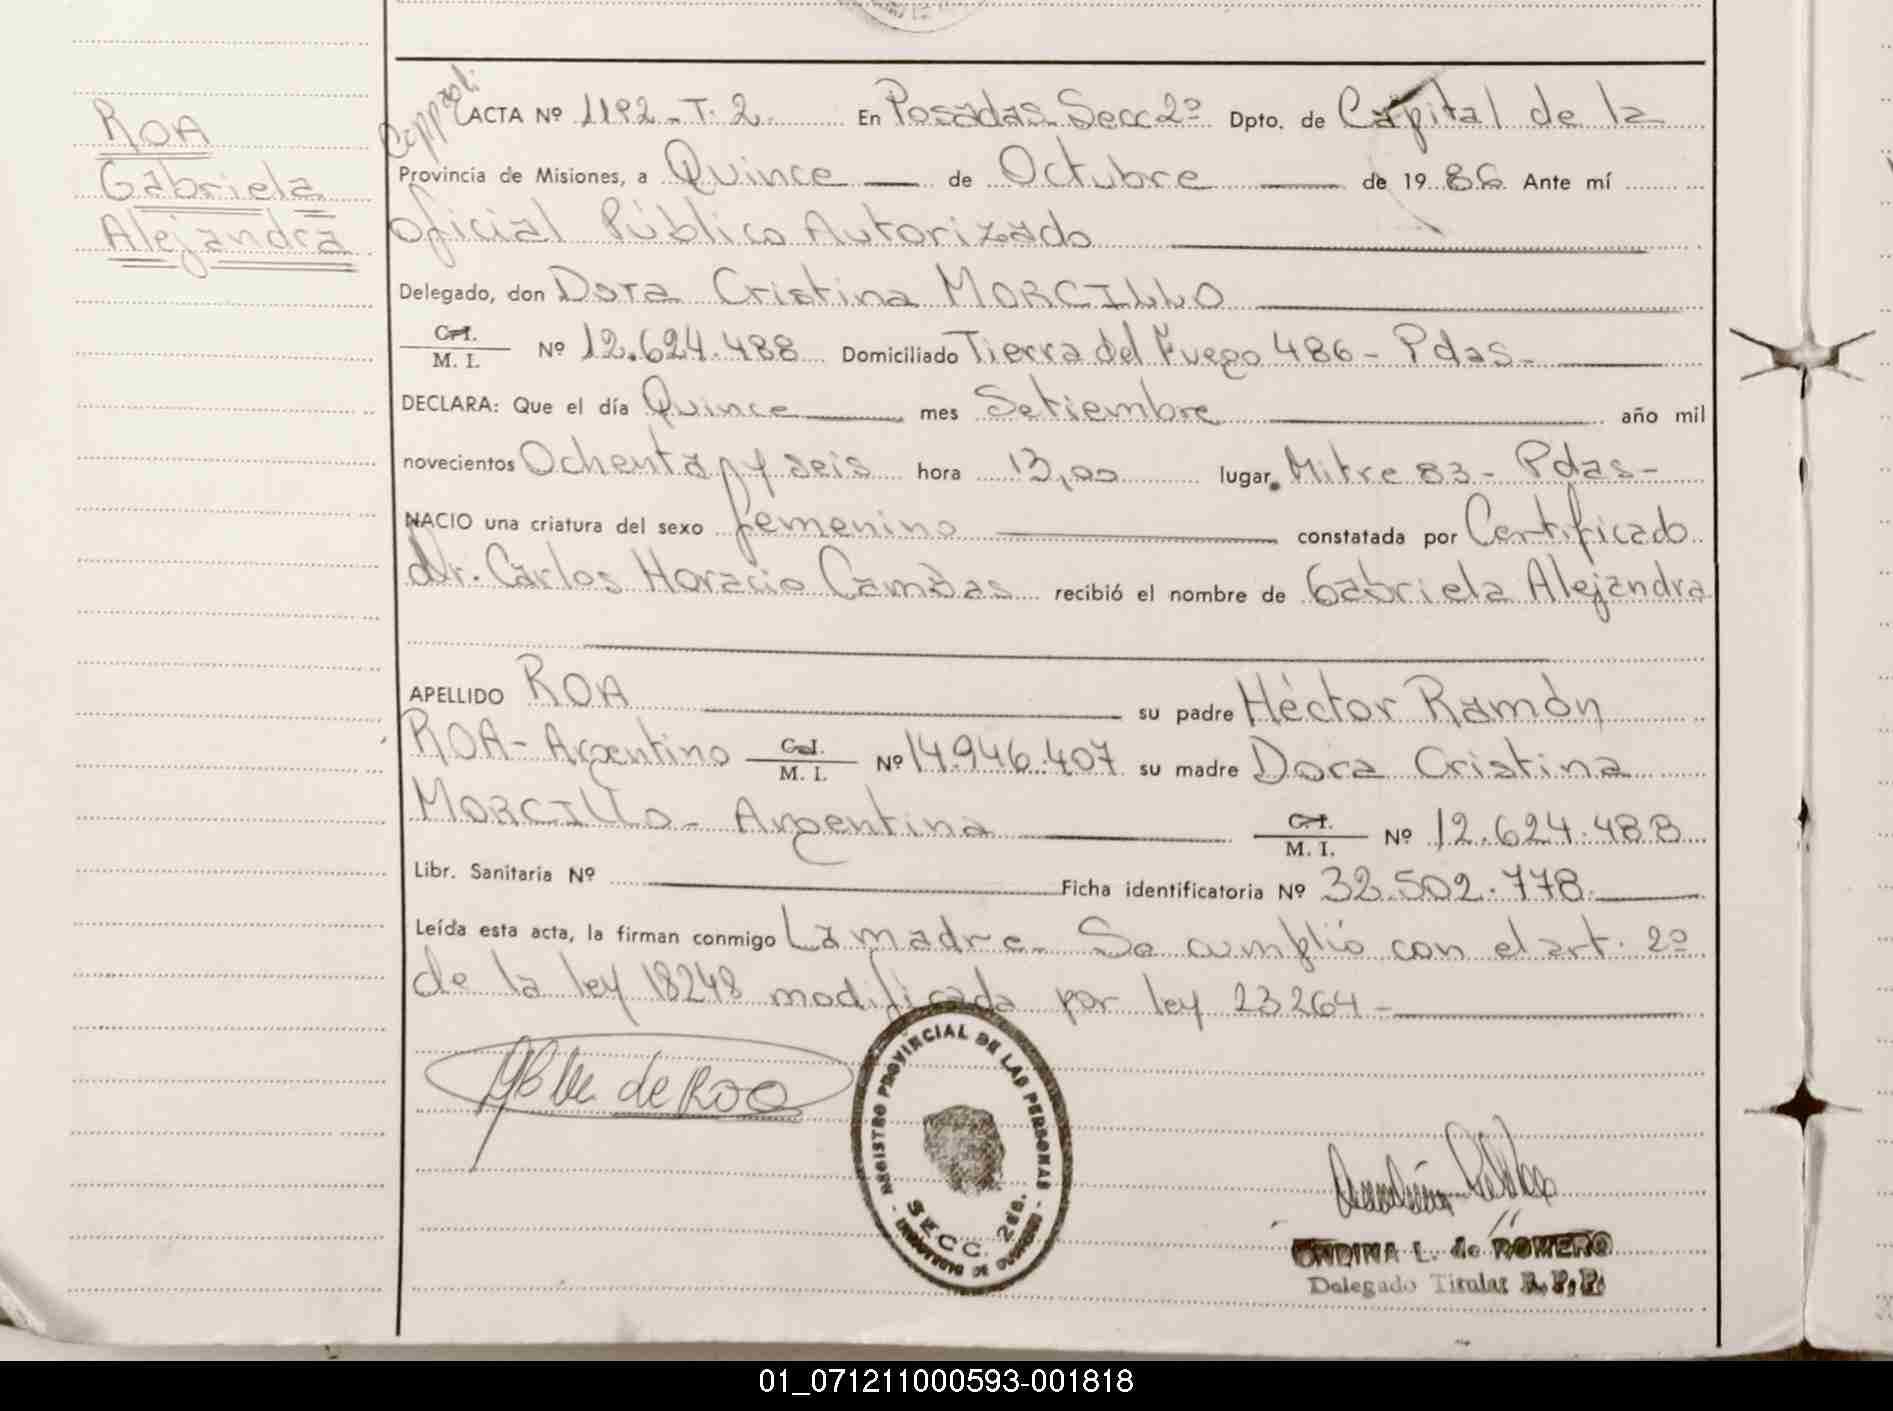 ROA
Gabriela
Alejandra
ACTA Nº 1192-T.2. En Posadas Secc 2º Dpto. de Capital de la
Provincia de Misiones, a Quince de Octubre de 1986 Ante mí
Oficial Público Autorizado
Delegado, don Dora Cristina MORCILLO
C. I.
M. I. Nº 12.624.488 Domiciliado Tierra del Fuego 486 - Pdas-
DECLARA: Que el día Quince mes Setiembre año mil
novecientos Ochenta y seis hora 13,00 lugar Mitre 83 - Pdas-
NACIO una criatura del sexo femenino constatada por Certificado
dr. Carlos Horacio Cambas recibió el nombre de Gabriela Alejandra
APELLIDO ROA su padre Héctor Ramón
ROA - Argentino C. I.
M. I. Nº 14.946.407 su madre Dora Cristina
MORCILLO - Argentina C. I.
M. I. Nº 12.624.488
Libr. Sanitaria Nº Ficha identificatoria Nº 32.502.778.
Leída esta acta, la firman conmigo La madre- Se cumplió con el art. 2º
de la ley 18248 modificada por ley 23264 -
de ROA
REGISTRO PROVINCIAL DE LAS PERSONAS
SECC. 2da.
ONDINA L. de ROMERO
Delegado Titular R. P. P.
01_071211000593-001818